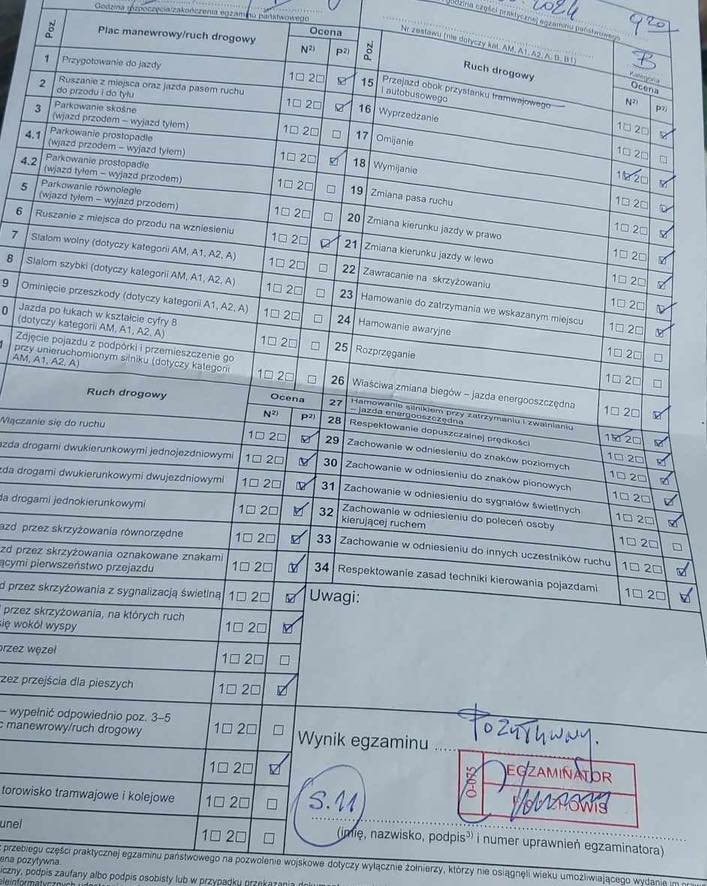 Godzina rozpoczęcia/zakończenia egzaminu państwowego
godzina części praktycznej egzaminu państwowego
2024
9 20
Nr zestawu (nie dotyczy kat. AM, A1, A2, A, B, B1)
B
Kategoria
Poz. Plac manewrowy/ruch drogowy Ocena
N²⁾ P²⁾
1 Przygotowanie do jazdy 1☐ 2☐ ☑
2 Ruszanie z miejsca oraz jazda pasem ruchu
do przodu i do tyłu 1☐ 2☐ ☑
3 Parkowanie skośne
(wjazd przodem – wyjazd tyłem) 1☐ 2☐ ☐
4.1 Parkowanie prostopadłe
(wjazd przodem – wyjazd tyłem) 1☐ 2☐ ☑
4.2 Parkowanie prostopadłe
(wjazd tyłem – wyjazd przodem) 1☐ 2☐ ☐
5 Parkowanie równoległe
(wjazd tyłem – wyjazd przodem) 1☐ 2☐ ☐
6 Ruszanie z miejsca do przodu na wzniesieniu 1☐ 2☐ ☑
7 Slalom wolny (dotyczy kategorii AM, A1, A2, A) 1☐ 2☐ ☐
8 Slalom szybki (dotyczy kategorii AM, A1, A2, A) 1☐ 2☐ ☐
9 Ominięcie przeszkody (dotyczy kategorii A1, A2, A) 1☐ 2☐ ☐
0 Jazda po łukach w kształcie cyfry 8
(dotyczy kategorii AM, A1, A2, A) 1☐ 2☐ ☐
Zdjęcie pojazdu z podpórki i przemieszczenie go
przy unieruchomionym silniku (dotyczy kategorii
AM, A1, A2, A) 1☐ 2☐ ☐
Ruch drogowy Ocena
N²⁾ P²⁾
Włączanie się do ruchu 1☐ 2☐ ☑
azda drogami dwukierunkowymi jednojezdniowymi 1☐ 2☐ ☑
zda drogami dwukierunkowymi dwujezdniowymi 1☐ 2☐ ☑
da drogami jednokierunkowymi 1☐ 2☐ ☑
azd przez skrzyżowania równorzędne 1☐ 2☐ ☑
zd przez skrzyżowania oznakowane znakami
ącymi pierwszeństwo przejazdu 1☐ 2☐ ☑
d przez skrzyżowania z sygnalizacją świetlną 1☐ 2☐ ☑
przez skrzyżowania, na których ruch
się wokół wyspy 1☐ 2☐ ☑
przez węzeł 1☐ 2☐ ☐
zez przejścia dla pieszych 1☐ 2☐ ☑
– wypełnić odpowiednio poz. 3–5
c manewrowy/ruch drogowy 1☐ 2☐ ☐
1☐ 2☐ ☑
torowisko tramwajowe i kolejowe 1☐ 2☐ ☐
unel 1☐ 2☐ ☐
Poz. Ruch drogowy Ocena
N²⁾ P²⁾
15 Przejazd obok przystanku tramwajowego
i autobusowego 1☐ 2☐ ☑
16 Wyprzedzanie 1☐ 2☐ ☐
17 Omijanie 1☑ 2☐ ☑
18 Wymijanie 1☐ 2☐ ☑
19 Zmiana pasa ruchu 1☐ 2☐ ☑
20 Zmiana kierunku jazdy w prawo 1☐ 2☐ ☑
21 Zmiana kierunku jazdy w lewo 1☐ 2☐ ☑
22 Zawracanie na skrzyżowaniu 1☐ 2☐ ☑
23 Hamowanie do zatrzymania we wskazanym miejscu 1☐ 2☐ ☐
24 Hamowanie awaryjne 1☐ 2☐ ☐
25 Rozprzęganie
26 Właściwa zmiana biegów – jazda energooszczędna 1☐ 2☐ ☑
27 Hamowanie silnikiem przy zatrzymaniu i zwalnianiu
– jazda energooszczędna 1☑ 2☐ ☑
28 Respektowanie dopuszczalnej prędkości 1☐ 2☐ ☑
29 Zachowanie w odniesieniu do znaków poziomych 1☐ 2☐ ☑
30 Zachowanie w odniesieniu do znaków pionowych 1☐ 2☐ ☑
31 Zachowanie w odniesieniu do sygnałów świetlnych 1☐ 2☐ ☑
32 Zachowanie w odniesieniu do poleceń osoby
kierującej ruchem 1☐ 2☐ ☐
33 Zachowanie w odniesieniu do innych uczestników ruchu 1☐ 2☐ ☑
34 Respektowanie zasad techniki kierowania pojazdami 1☐ 2☐ ☑
Uwagi:
Wynik egzaminu ..... Pozytywny.
EGZAMINATOR
S.11
(imię, nazwisko, podpis³⁾ i numer uprawnień egzaminatora)
przebiegu części praktycznej egzaminu państwowego na pozwolenie wojskowe dotyczy wyłącznie żołnierzy, którzy nie osiągnęli wieku umożliwiającego wydanie im
ena pozytywna.
iczny, podpis zaufany albo podpis osobisty lub w przypadku przekazania